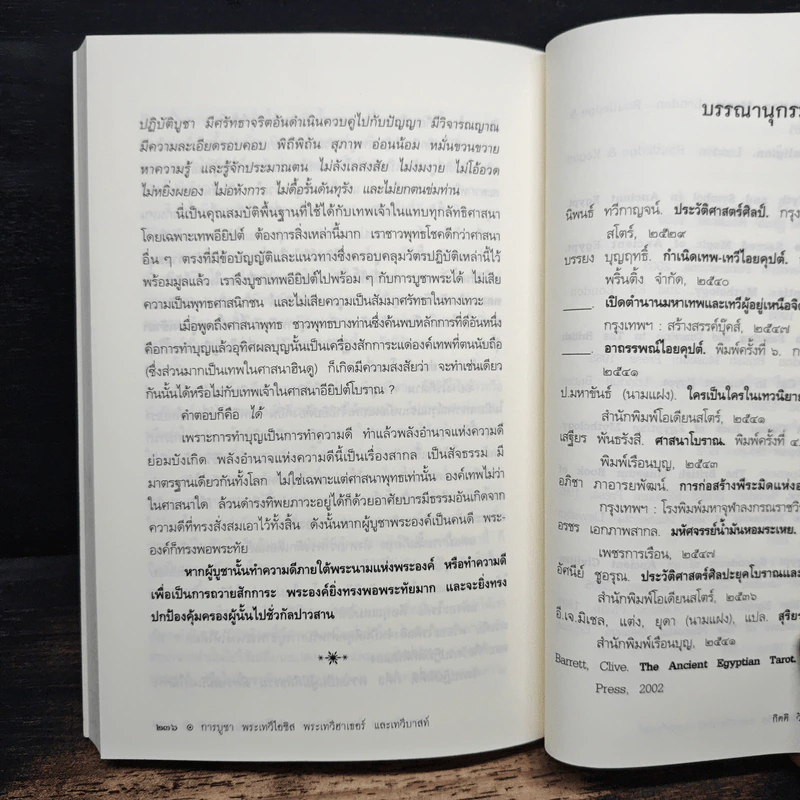 ปฏิบัติบูชา มีศรัทธาจริตอันดำเนินควบคู่ไปกับปัญญา มีวิจารณญาณ
มีความละเอียดรอบคอบ พิถีพิถัน สุภาพ อ่อนน้อม หมั่นขวนขวาย
หาความรู้ และรู้จักประมาณตน ไม่ลังเลสงสัย ไม่งมงาย ไม่โอ้อวด
ไม่หยิ่งผยอง ไม่อหังการ ไม่ดื้อรั้นดันทุรัง และไม่ยกตนข่มท่าน
นี่เป็นคุณสมบัติพื้นฐานที่ใช้ได้กับเทพเจ้าในแทบทุกลัทธิศาสนา
โดยเฉพาะเทพอียิปต์ ต้องการสิ่งเหล่านี้มาก เราชาวพุทธโชคดีกว่าศาสนา
อื่น ๆ ตรงที่มีข้อบัญญัติและแนวทางซึ่งครอบคลุมวัตรปฏิบัติเหล่านี้ไว้
พร้อมมูลแล้ว เราจึงบูชาเทพอียิปต์ไปพร้อม ๆ กับการบูชาพระได้ ไม่เสีย
ความเป็นพุทธศาสนิกชน และไม่เสียความเป็นสัมมาศรัทธาในทางเทวะ
เมื่อพูดถึงศาสนาพุทธ ชาวพุทธบางท่านซึ่งค้นพบหลักการที่ดีอันหนึ่ง
คือการทำบุญแล้วอุทิศผลบุญนั้นเป็นเครื่องสักการะแด่องค์เทพที่ตนนับถือ
(ซึ่งส่วนมากเป็นเทพในศาสนาฮินดู) ก็เกิดมีความสงสัยว่า จะทำเช่นเดียว
กันนั้นได้หรือไม่กับเทพเจ้าในศาสนาอียิปต์โบราณ ?
คำตอบก็คือ ได้
เพราะการทำบุญเป็นการทำความดี ทำแล้วพลังอำนาจแห่งความดี
ย่อมบังเกิด พลังอำนาจแห่งความดีนี้เป็นเรื่องสากล เป็นสัจธรรม มี
มาตรฐานเดียวกันทั้งโลก ไม่ใช่เฉพาะแต่ศาสนาพุทธเท่านั้น องค์เทพไม่ว่า
ในศาสนาใด ล้วนดำรงทิพยภาวะอยู่ได้ก็ด้วยอาศัยบารมีธรรมอันเกิดจาก
ความดีที่ทรงสั่งสมเอาไว้ทั้งสิ้น ดังนั้นหากผู้บูชาพระองค์เป็นคนดี พระ-
องค์ก็ทรงพอพระทัย
หากผู้บูชานั้นทำความดีภายใต้พระนามแห่งพระองค์ หรือทำความดี
เพื่อเป็นการถวายสักการะ พระองค์ยิ่งทรงพอพระทัยมาก และจะยิ่งทรง
ปกป้องคุ้มครองผู้นั้นไปชั่วกัลปาวสาน
๒๓๖ ๏ การบูชา พระเทวีไอซิส พระเทวีฮาเธอร์ และเทวีบาสท์
บรรณานุกร
นิพนธ์ ทวีกาญจน์. ประวัติศาสตร์ศิลป์. กรุง
สโตร์, ๒๕๒๙
บรรยง บุญฤทธิ์. กำเนิดเทพ-เทวีไอยคุปต์.
พริ้นติ้ง จำกัด, ๒๕๔๐
____. เปิดตำนานมหาเทพและเทวีผู้อยู่เหนือจิต
กรุงเทพฯ : สร้างสรรค์บุ๊คส์, ๒๕๔๗
____. อาถรรพณ์ไอยคุปต์. พิมพ์ครั้งที่ ๖. ก
๒๕๔๑
ป.มหาขันธ์ (นามแฝง). ใครเป็นใครในเทวนิยาย
สำนักพิมพ์โอเดียนสโตร์, ๒๕๔๑
เสฐียร พันธรังสี. ศาสนาโบราณ. พิมพ์ครั้งที่ ๔.
พิมพ์เรือนบุญ, ๒๕๔๓
อภิชา ภาอารยพัฒน์. การก่อสร้างพีระมิดแห่งอ
กรุงเทพฯ : โรงพิมพ์มหาจุฬาลงกรณราชวิ
อรชร เอกภาพสากล. มหัศจรรย์น้ำมันหอมระเหย.
เพชรการเรือน, ๒๕๔๗
อัศนีย์ ชูอรุณ. ประวัติศาสตร์ศิลปะยุคโบราณและ
สำนักพิมพ์โอเดียนสโตร์, ๒๕๓๖
อี.เจ.มิเชล, แต่ง, ยุดา (นามแฝง), แปล. สุริยร
สำนักพิมพ์เรือนบุญ, ๒๕๔๑
Barrett, Clive. The Ancient Egyptian Tarot.
Press, 2002
กิตติ วั